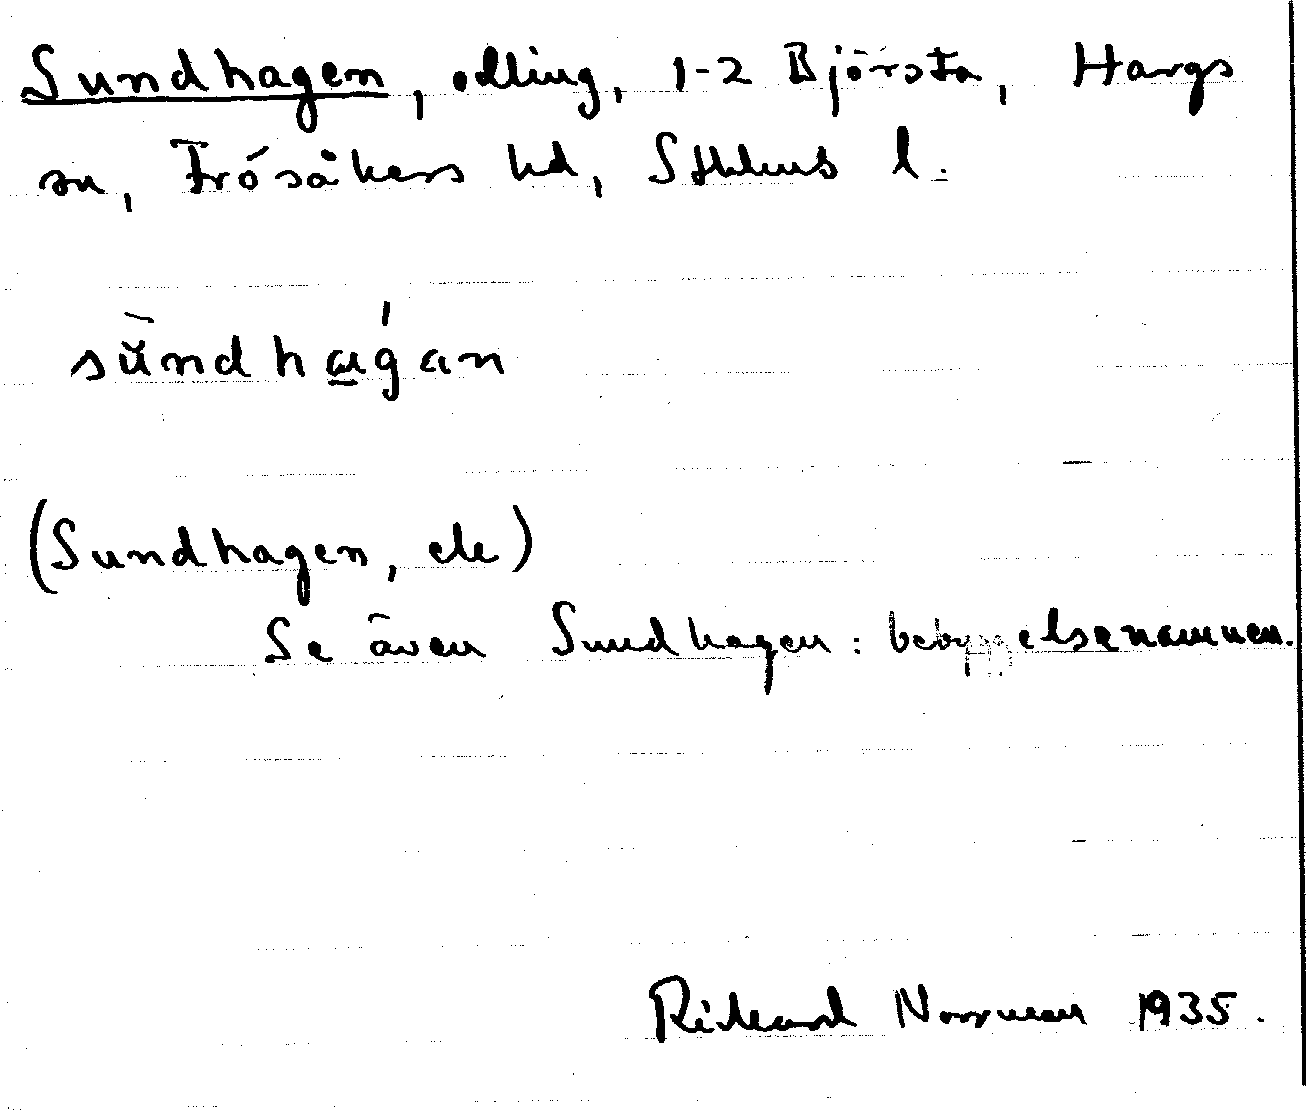 Sundhagen, odling, 1-2 Björsta, Hargs
sn, Frösåkers hd, Sthlms l.
sŭ̀ndhaǵan
(Sundhagen, ek)
Se även Sundhagen: bebyggelsenamnen.
Rickard Norrman 1935.